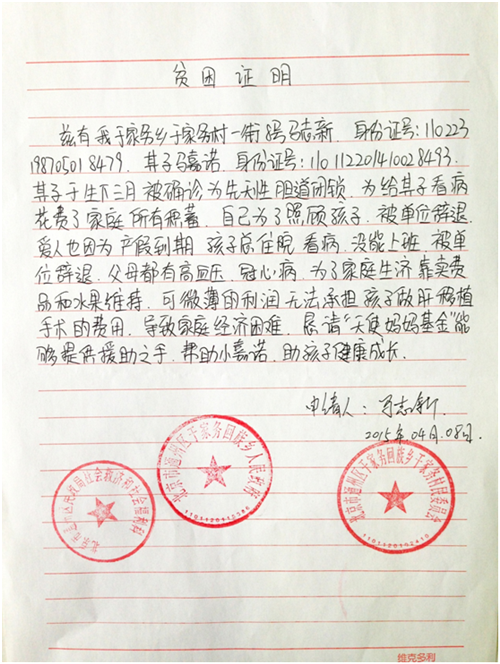 贫困证明
兹有我于家务乡于家务村一街8号马志新,身份证号:110223
198705018479.其子马嘉诺.身份证号:110112201410028493.
其子于生下三月被确诊为先天性胆道闭锁,为给其子看病
花费了家庭所有积蓄,自己为了照顾孩子,被单位辞退.
爱人也因为产假到期 孩子总住院看病.没能上班 被单
位辞退.父母都有高血压,冠心病.为了家庭生济靠卖费
品和水果维持,可微薄的利润无法承担孩子做肝移植
手术的费用,导致家庭经济困难,恳请"天使妈妈基金"能
够提供援助之手,帮助小嘉诺,助孩子健康成长.
申请人:马志新.
2015年04月08日.
北京市通州区于家务回族乡人民政府
北京市通州区于家务回族乡于家务村民委员会
社会救济和社会福利科
维克多利